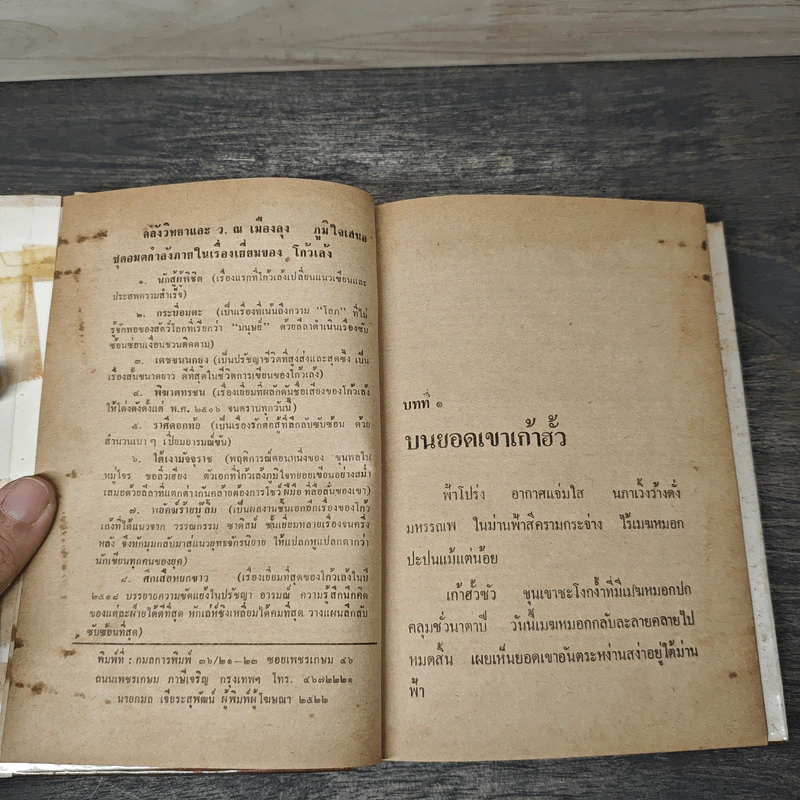 คลังวิทยาและ ว. ณ เมืองลุง ภูมิใจเสนอ
ชุดอมตกำลังภายในเรื่องเยี่ยมของ โก้วเล้ง
๑. นักสู้ผู้พิชิต (เรื่องแรกที่โก้วเล้งเปลี่ยนแนวเขียนและ
ประสพความสำเร็จ)
๒. กระบี่อมตะ (เป็นเรื่องที่เน้นถึงความ “โลภ” ที่ไม่
รู้จักพอของสัตว์โลกที่เรียกว่า “มนุษย์” ด้วยลีลาดำเนินเรื่องซับ
ซ้อนซ่อนเงื่อนชวนติดตาม)
๓. เดชขนนกยูง (เป็นปรัชญาชีวิตที่สูงส่งและสุดซึ้ง เป็น
เรื่องสั้นขนาดยาว ดีที่สุดในชีวิตการเขียนของโก้วเล้ง)
๔. พิฆาตทรชน (เรื่องเยี่ยมที่ผลักดันชื่อเสียงของโก้วเล้ง
ให้โด่งดังตั้งแต่ พ.ศ. ๒๕๐๖ จนตราบทุกวันนี้)
๕. ราศีดอกท้อ (เป็นเรื่องรักต่อสู้ที่ลึกลับซับซ้อน ด้วย
สำนวนเบา ๆ เปี่ยมอารมณ์ขัน)
๖. ใต้เงามัจจุราช (พฤติการณ์ตอนหนึ่งของ ขุนพลใน
หมู่โจร ชอลิ้วเฮียง ตัวเอกที่โก้วเล้งภูมิใจทยอยเขียนอย่างสม่ำ
เสมอด้วยลีลาที่แตกต่างกันคล้ายต้องการโชว์ฝีมือ ที่ลือลั่นของเขา)
๗. พยัคฆ์ร้ายบู๊ลิ้ม (เป็นผลงานชิ้นเอกอีกเรื่องของโก้ว
เล้งที่ได้แนวจาก วรรณกรรม ชั้นเยี่ยมหลายเรื่องจนครั้ง
หลัง จึงหักมุมกลับมาสู่แนวยุทธจักรนิยาย ให้แปลกหูแปลกตากว่า
นักเขียนทุกคนของยุค)
๘. ศึกเสือหยกขาว (เรื่องเยี่ยมที่สุดของโก้วเล้งในปี
๒๕๑๘ บรรยายความขัดแย้งในปรัชญา อารมณ์ ความรู้สึกนึกคิด
ของแต่ละฝ่ายได้ดีที่สุด หักเล่ห์ชิงเหลี่ยมได้คมที่สุด วางแผนลึกลับ
ซับซ้อนที่สุด)
พิมพ์ที่ : กมลการพิมพ์ ๓๖/๒๑–๒๓ ซอยเพชรเกษม ๔๖
ถนนเพชรเกษม ภาษีเจริญ กรุงเทพฯ โทร. ๔๖๗๒๒๒๑
นายกมล เจียระสุพัฒน์ ผู้พิมพ์ผู้โฆษณา ๒๕๒๒
บทที่ ๑
บนยอดเขาเก้าฮั้ว
ฟ้าโปร่ง อากาศแจ่มใส นภาเวิ้งว้างดั่ง
มหรรณพ ในม่านฟ้าสีครามกระจ่าง ไร้เมฆหมอก
ปะปนแม้แต่น้อย
เก้าฮั้วซัว ขุนเขาชะโงกง้ำที่มีเมฆหมอกปก
คลุมชั่วนาตาปี วันนี้เมฆหมอกกลับละลายคลายไป
หมดสิ้น เผยเห็นยอดเขาอันตระหง่านสง่าอยู่ใต้ม่าน
ฟ้า